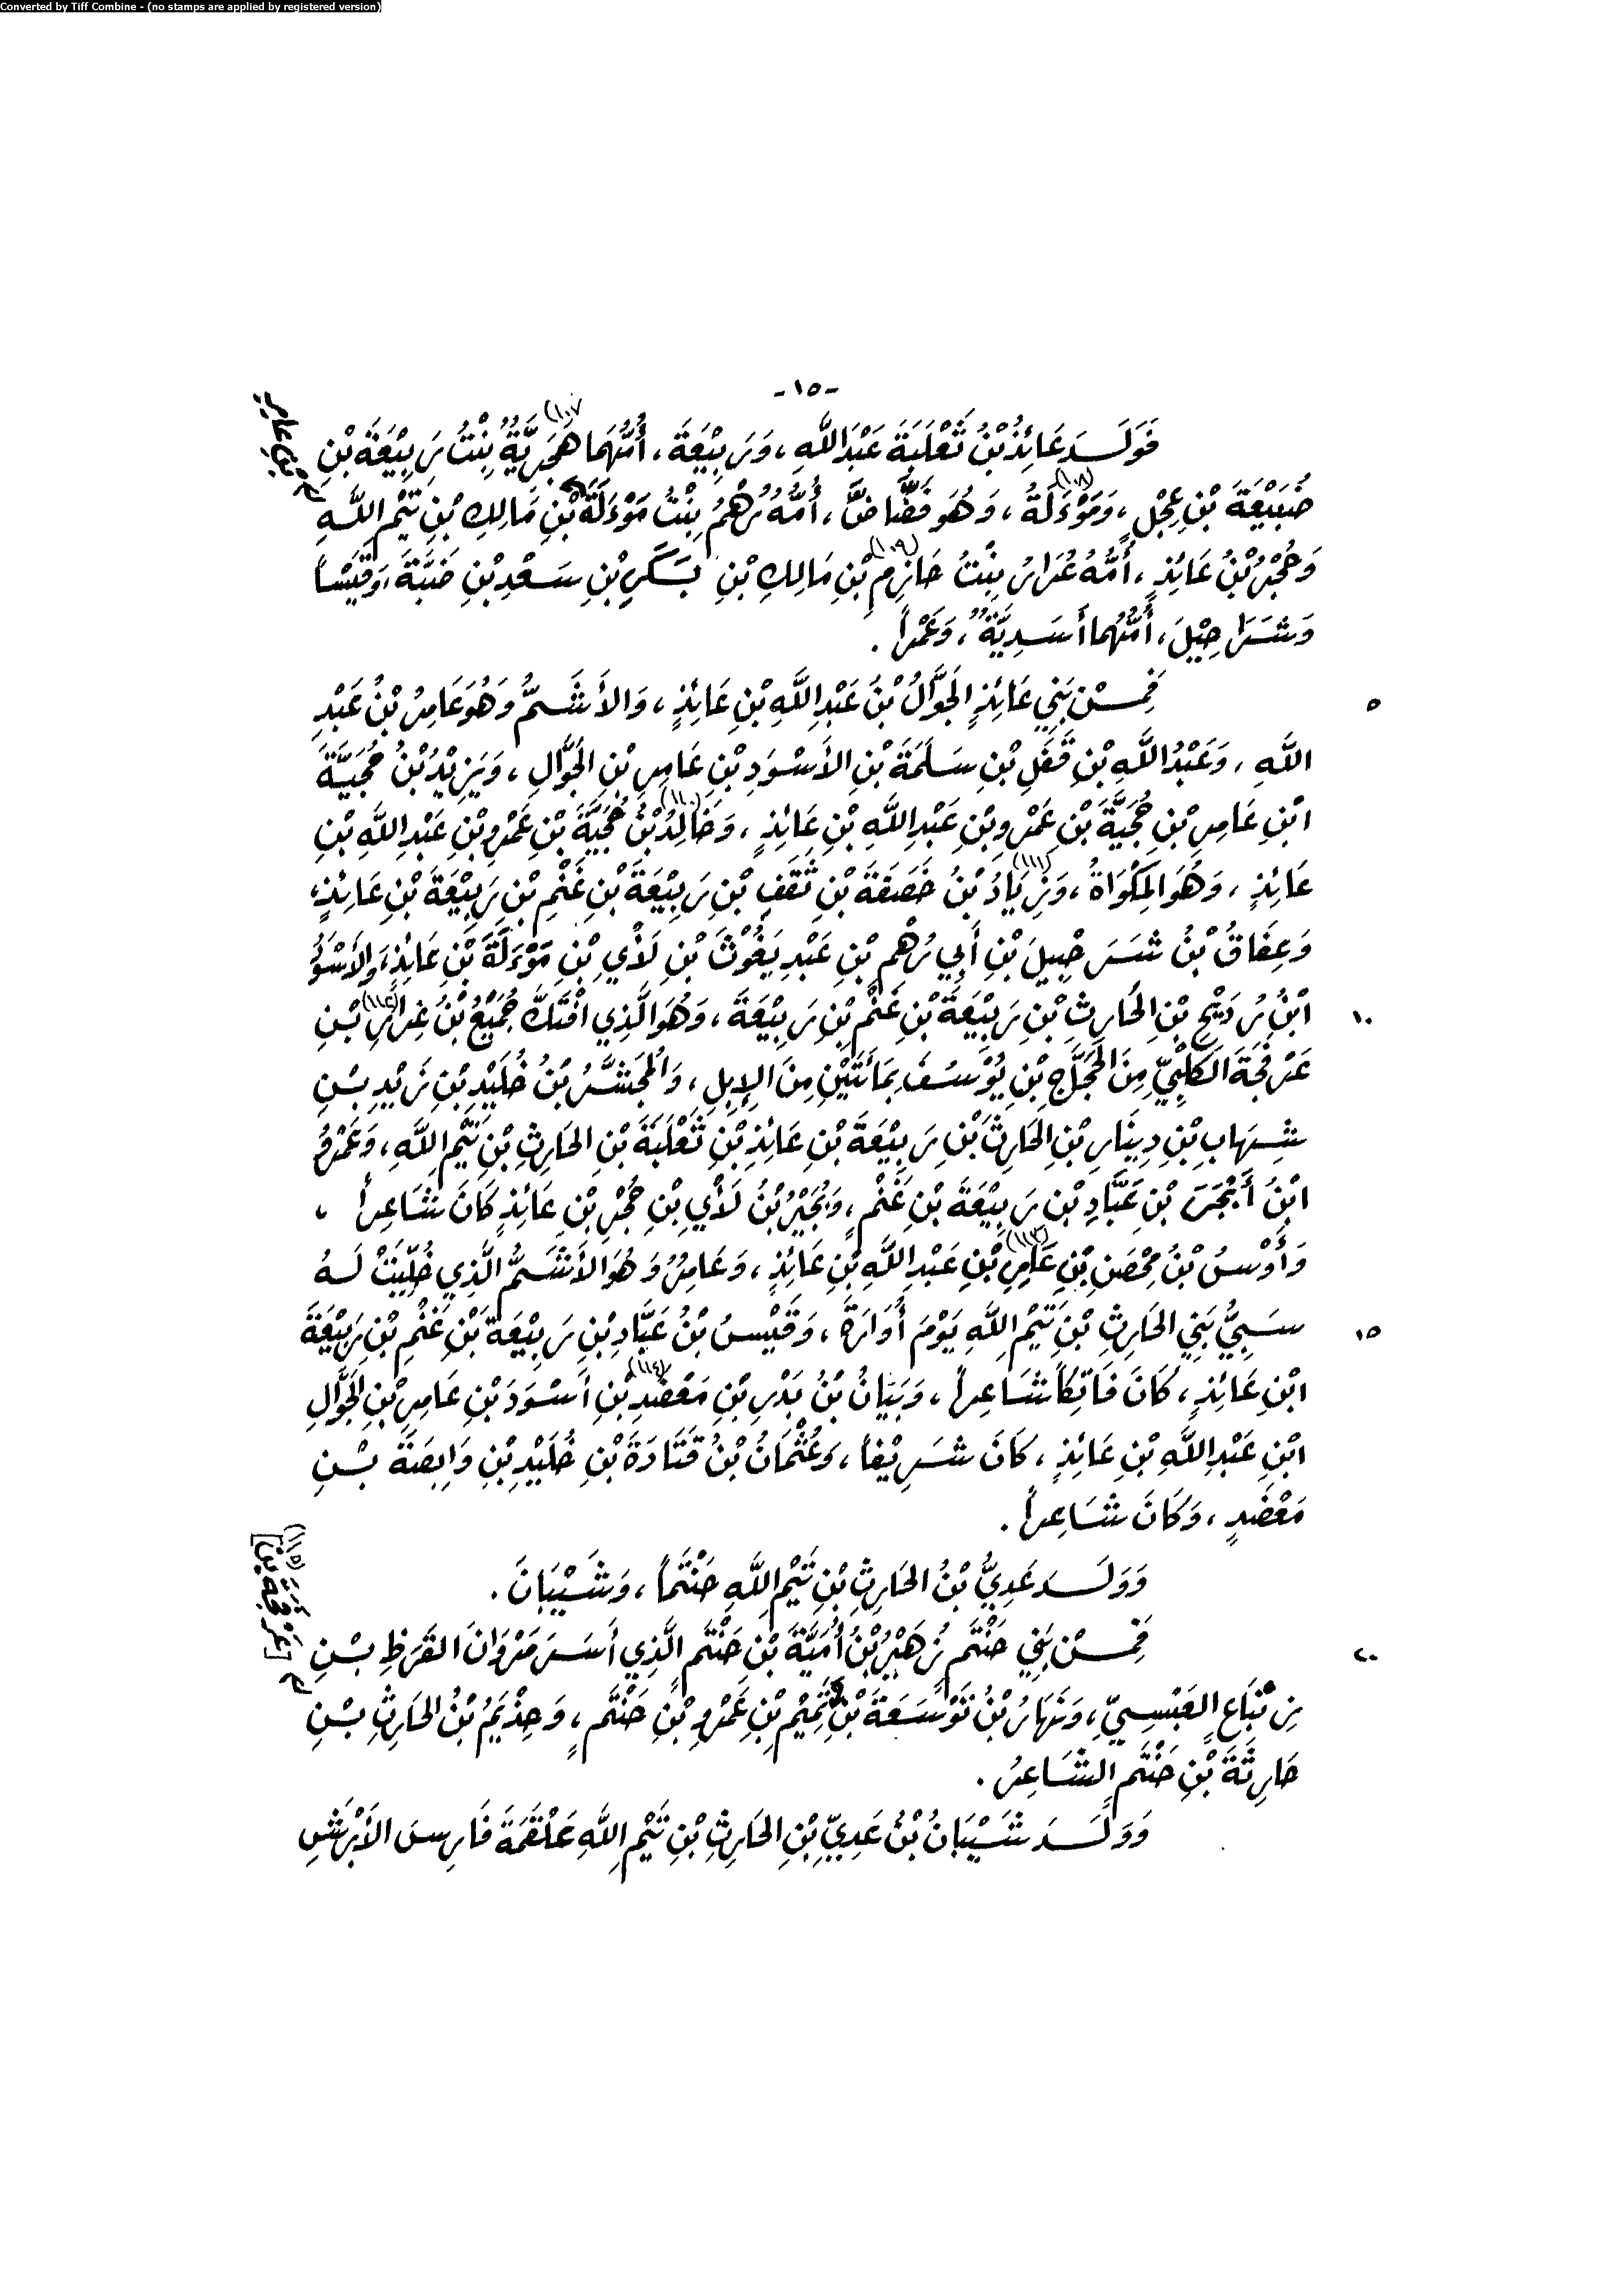 Converted by Tiff Combine - (no stamps are applied by registered version)
-١٥-
فَوَلَـدَ عَائِذُ بْنُ ثَعْلَبَةَ عَبْدَ اللَّهِ، وَرَبِيْعَةَ، أُمُّهُمَا هَجَرِيَّةُ (١٠٧) بِنْتُ رَبِيْعَةَ بْنِ
بْنِ عَامِرِ
ضُبَيْعَةَ بْنِ عِجْلٍ، وَمَوْءَلَةُ (١٠٨)، وَهُوَ فَضَّاضٌ، أُمُّهُ رُهْمُ بِنْتُ مَوْءَلَةَ بْنِ مَالِكِ بْنِ تَيْمِ اللَّهِ
وَحُجْرُ بْنُ عَائِذٍ، أُمُّهُ عُرَارُ بِنْتُ حَازِمِ (١٠٩) بْنِ مَالِكِ بْنِ بَكْرِ بْنِ سَعْدِ بْنِ ضَبَّةَ، وَقَيْساً
وَشَرَاحِيْلَ، أُمُّهُما أَسَدِيَّةٌ، وَعَمْراً.
٥ فَمِـنْ بَنِي عَائِذٍ الجَوَّالُ بْنُ عَبْدِ اللَّهِ بْنِ عَائِذٍ، وَالأَشَـمُّ وَهُوَ عَامِرُ بْنُ عَبْدِ
اللَّهِ، وَعَبْدُ اللَّهِ بْنِ قَفَلِ بْنِ سَلَمَةَ بْنِ الأَسْوَدِ بْنِ عَامِرِ بْنِ الجَوَّالِ، وَيَزِيْدُ بْنُ حُجَيَّةَ
ابْنِ عَامِرِ بْنِ حُجَيَّةَ بْنِ عَمْرِو بْنِ عَبْدِ اللَّهِ بْنِ عَائِذٍ، وَخَالِدُ بْنُ (١١٠) حُجَيَّةَ بْنِ عَمْرِو بْنِ عَبْدِ اللَّهِ بْنِ
عَائِذٍ، وَهُوَ المِكْوَاةُ، وَزِيَادُ (١١١) بْنُ خَصَفَةَ بْنِ ثَقَفِ بْنِ رَبِيْعَةَ بْنِ غَنْمِ بْنِ رَبِيْعَةَ بْنِ عَائِذٍ،
وَعِفَاقُ بْنُ شَرَحْبِيلَ بْنِ أَبِي رُهْمِ بْنِ عَبْدِ يَغُوْثَ بْنِ لَأْيِ بْنِ مَوْءَلَةَ بْنِ عَائِذٍ، وَالأَسْوَدُ
١٠ ابْنُ رُدَيْحِ بْنِ الحَارِثِ بْنِ رَبِيْعَةَ بْنِ غَنْمِ بْنِ رَبِيْعَةَ، وَهُوَ الَّذِي افْتَكَّ جُمَيْعَ بْنَ عِرَارِ بْنِ
عَرْفُجَةَ الكَلْبِيَّ مِنَ الحَجَّاجِ بْنِ يُوْسُفَ بِمَائَتَيْنِ مِنَ الإِبِلِ، وَالمُجَشَّرُ بْنُ خُلَيْدِ بْنِ زَيْدِ بْـنِ
شِهَابِ بْنِ دِينَارِ بْنِ الحَارِثِ بْنِ رَبِيْعَةَ بْنِ عَائِذِ بْنِ ثَعْلَبَةَ بْنِ الحَارِثِ بْنِ تَيْمِ اللَّهِ، وَعَمْرُو
ابْنُ أَبْجَرَ بْنِ عَبَّادِ بْنِ رَبِيْعَةَ بْنِ غَنْمٍ، وَبُجَيْرُ بْنُ لَأْيِ بْنِ حُجْرِ بْنِ عَائِذٍ كَانَ شَاعِراً،
وَأَوْسُ بْنُ مِحْصَنِ بْنِ عَامِرِ (١١٣) بْنِ عَبْدِ اللَّهِ بْنِ عَائِذٍ، وَعَامِرُ وَهُوَ الأَشَـمُّ الَّذِي خُلِّيَتْ لَـهُ
١٥ سَبِيُّ بَنِي الحَارِثِ بْنِ تَيْمِ اللَّهِ يَوْمَ أُوَارَةَ، وَقَيْسُ بْنُ عَبَّادِ بْنِ رَبِيْعَةَ بْنِ غَنْمِ بْنِ رَبِيْعَةَ
ابْنِ عَائِذٍ، كَانَ فَاتِكاً شَاعِراً، وَبَيَانُ بْنُ بَدْرِ بْنِ مَعْضَدِ (١١٤) بْنِ أَسْوَدَ بْنِ عَامِرِ بْنِ الجَوَّالِ
ابْنِ عَبْدِ اللَّهِ بْنِ عَائِذٍ، كَانَ شَرِيْفاً، وَعُثْمَانُ بْنُ قَتَادَةَ بْنِ خُلَيْدِ بْنِ وَابِصَةَ بْـنِ
مَعْضَدٍ، وَكَانَ شَاعِراً.
وَوَلَـدَ عَدِيُّ بْنُ الحَارِثِ بْنِ تَيْمِ اللَّهِ حَنْتَماً، وَشَيْبَانَ.
٢٠ فَمِـنْ بَنِي حَنْتَمٍ زُهَيْرُ بْنُ أُمَيَّةَ بْنِ حَنْتَمٍ الَّذِي أَسَرَ مَرْوَانَ القَرَظِ بْـنِ
زِنْبَاعٍ العَبْسِيَّ، وَنَهَارُ بْنُ تَوْسَعَةَ بْنِ تَمِيْمِ بْنِ عَمْرِو بْنِ حَنْتَمٍ، وَحِذْيَمُ بْنُ الحَارِثِ بْـنِ
(١١٥) [عَرْفَجَةَ بْنِ]
حَارِثَةَ بْنِ حَنْتَمٍ الشَّاعِرُ.
وَوَلَـدَ شَيْبَانُ بْنُ عَدِيِّ بْنِ الحَارِثِ بْنِ تَيْمِ اللَّهِ عَلْقَمَةَ فَارِسَ الأَبْرَشِ